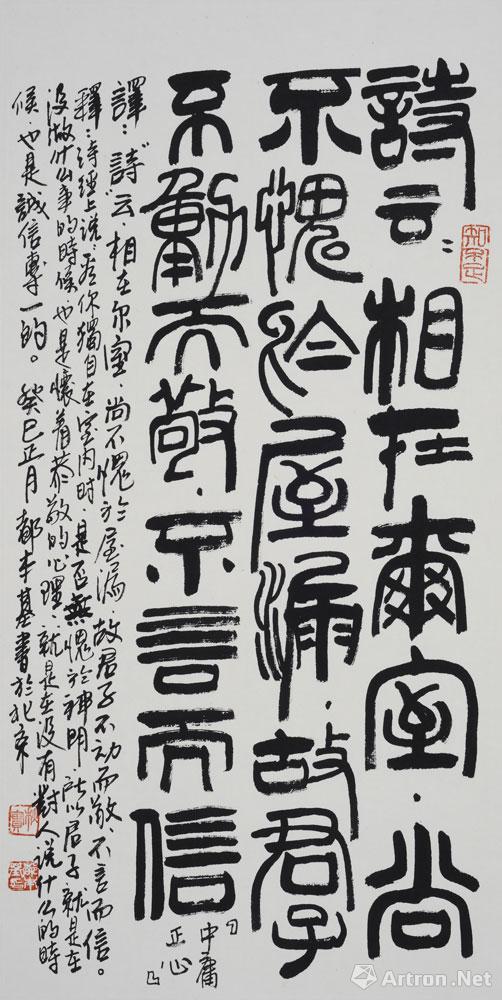 詩云：相在爾室，尚
不愧於屋漏，故君子
不動而敬，不言而信
「中庸
正心」
譯：“詩”云 相在尔室，尚不愧於屋漏，故君子不动而敬，不言而信。
釋：诗經上说，看你獨自在室内时，是否無愧於神明，所以君子就是在
没做什么事的時候，也是懷着恭敬的心理，就是在没有對人说什么的時
候，也是誠信專一的。癸巳正月 都本基書於北京
Artron.Net